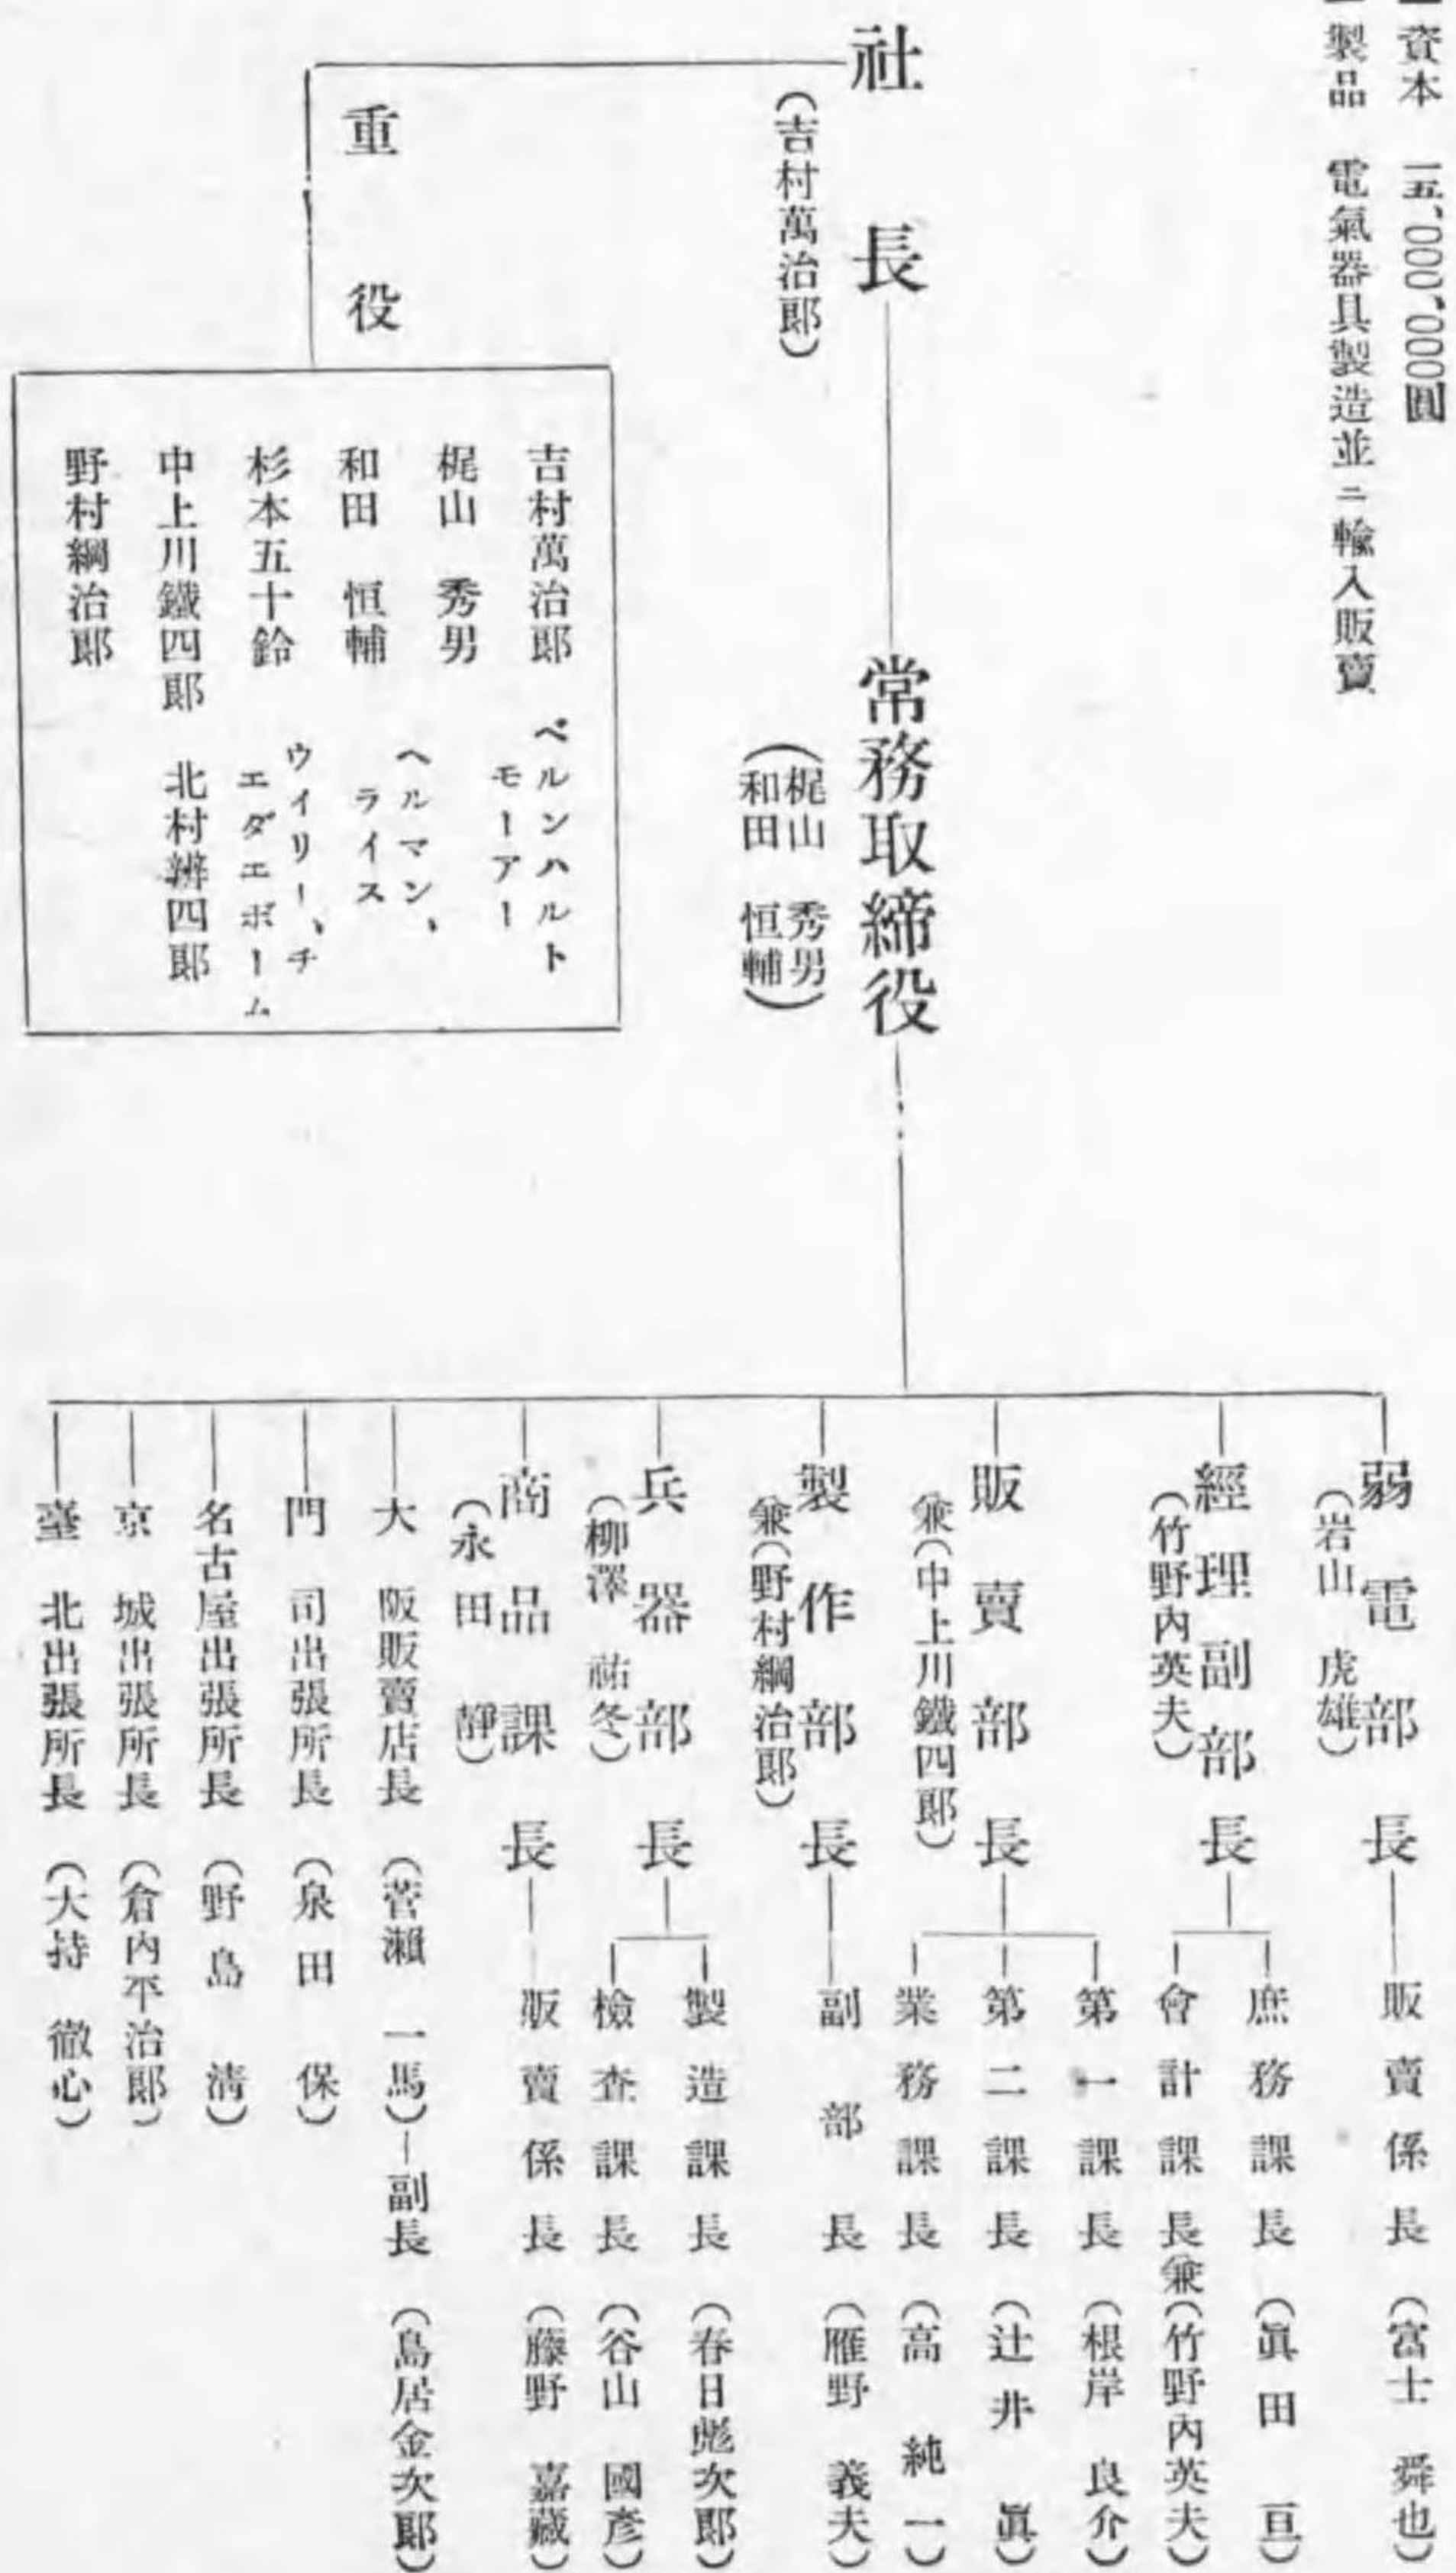 資本 一五、000、000圓
製品 電氣器具製造並ニ輸入販賣
社長
(吉村萬治郎)
常務取締役
(梶山 秀男
和田 恒輔)
重役
吉村萬治郎
梶山 秀男
和田 恒輔
杉本五十鈴
中上川鐵四郎
野村綱治郎
ベルンハルト
モーアー
ヘルマン、
ライス
ウイリー、チ
エダエボーム
北村辨四郎
弱電部長
(岩山 虎雄)
販賣係長 (富士 舜也)
經理副部長
(竹野內英夫)
庶務課長 (眞田 亘)
會計課長兼(竹野內英夫)
販賣部長
兼(中上川鐵四郎)
第一課長 (根岸 良介)
第二課長 (辻井 眞)
業務課長 (高 純一)
製作部長
兼(野村綱治郎)
副部長 (雁野 義夫)
兵器部長
(柳澤 祐冬)
製造課長 (春日彪次郎)
檢査課長 (谷山 國彥)
商品課長
(永田 靜)
販賣係長 (藤野 嘉藏)
大阪販賣店長 (菅瀨 一馬)―副長 (島居金次郎)
門司出張所長 (泉田 保)
名古屋出張所長 (野島 淸)
京城出張所長 (倉內平治郎)
臺北出張所長 (大持 徹心)